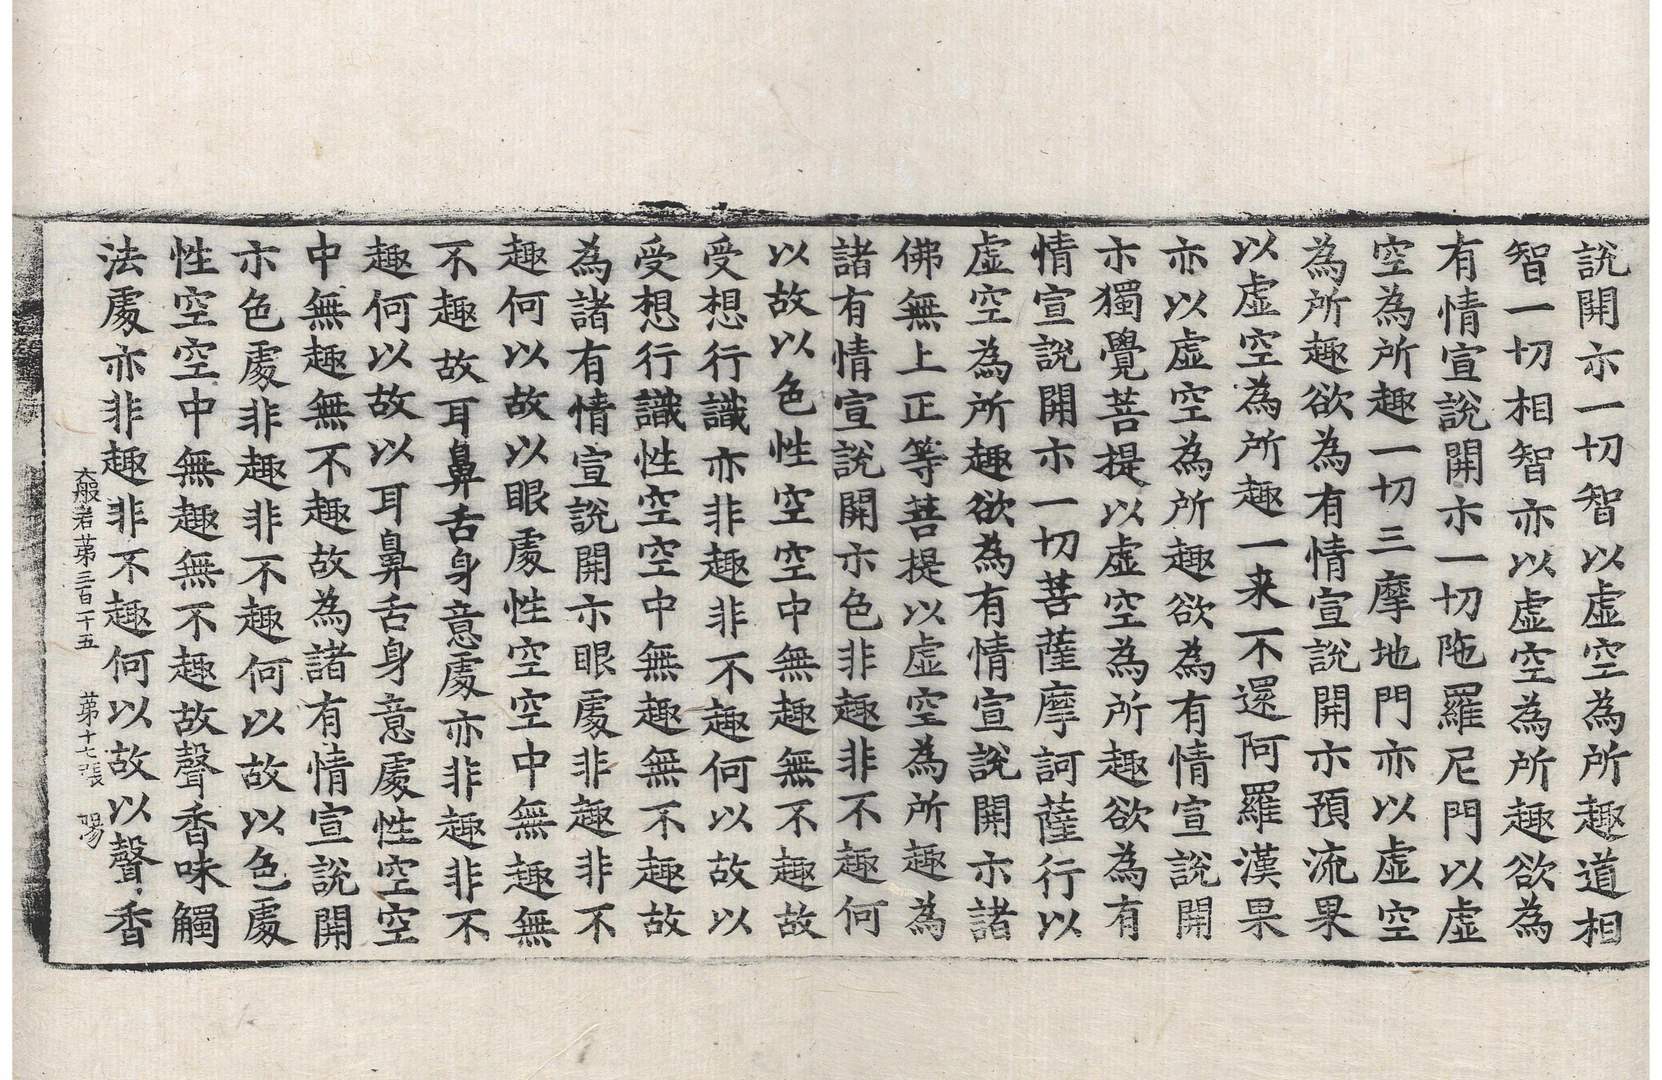 說開示一切智以虛空為所趣道相
智一切相智亦以虛空為所趣欲為
有情宣說開示一切陁羅尼門以虛
空為所趣一切三摩地門亦以虛空
為所趣欲為有情宣說開示預流果
以虛空為所趣一来不還阿羅漢果
亦以虛空為所趣欲為有情宣說開
示獨覺菩提以虛空為所趣欲為有
情宣說開示一切菩薩摩訶薩行以
虛空為所趣欲為有情宣說開示諸
佛無上正等菩提以虛空為所趣為
諸有情宣說開示色非趣非不趣何
以故以色性空空中無趣無不趣故
受想行識亦非趣非不趣何以故以
受想行識性空空中無趣無不趣故
為諸有情宣說開示眼處非趣非不
趣何以故以眼處性空空中無趣無
不趣故耳鼻舌身意處亦非趣非不
趣何以故以耳鼻舌身意處性空空
中無趣無不趣故為諸有情宣說開
示色處非趣非不趣何以故以色處
性空空中無趣無不趣故聲香味觸
法處亦非趣非不趣何以故以聲香
大般若第三百二十五 第十七張